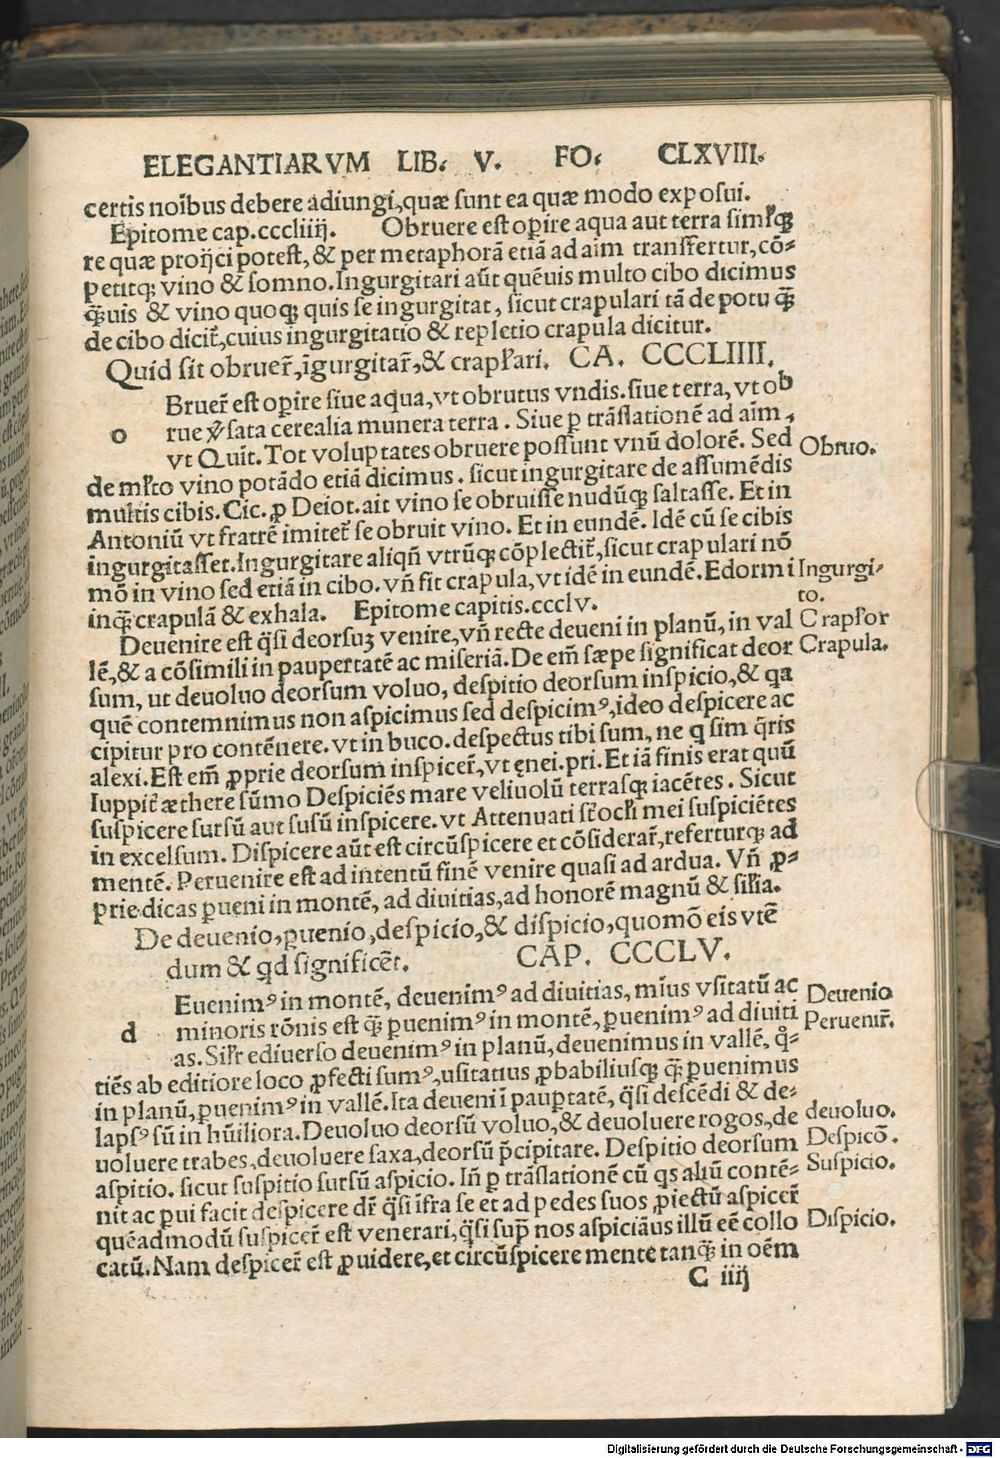 ELEGANTIARVM LIB. V. FO. CLXVIII.
certis noĩbus debere adiungi, quæ sunt ea quæ modo exposui.
Epitome cap.cccliiij. Obruere est operire aqua aut terra
re quæ proijci potest, & per metaphorã etiã ad aĩm transfertur, cõ-
petitq; vino & somno. Ingurgitari aũt quẽuis multo cibo dicimus
q̃uis & vino quoq; quis se ingurgitat, sicut crapulari tã de potu q̃
de cibo dicit̃, cuius ingurgitatio & repletio crapula dicitur.
Quid sit obruer̃, ĩgurgitar̃, & crapl̃ari. CA. CCCLIIII.
Bruer̃ est oꝑire siue aqua, vt obrutus vndis. siue terra, vt ob
o rue sata cerealia munera terra. Siue ꝑ trãslationẽ ad aĩm,
vt Quĩt. Tot voluptates obruere possunt vnũ dolorẽ. Sed
Obruo.
de ml̃to vino potãdo etiã dicimus. sicut ingurgitare de assumẽdis
multis cibis. Cic. ꝓ Deiot. ait vino se obruisse nudũq; saltasse. Et in
Antoniũ vt fratrẽ imitet̃ se obruit vino. Et in eundẽ. Idẽ cũ se cibis
ingurgitasset. Ingurgitare aliqñ vtrũq; cõplectit̃, sicut crapulari nõ
mõ in vino sed etiã in cibo. vñ fit crapula, vt idẽ in eundẽ. Edormi
Ingurgi-
to.
inq̃ crapulã & exhala. Epitome capitis.ccclv.
Deuenire est q̃si deorsuꝫ venire, vñ recte deueni in planũ, in val
Crapl̃or
lẽ, & a cõsimili in paupertatẽ ac miseriã. De em̃ sæpe significat deor
Crapula.
sum, ut deuoluo deorsum voluo, despitio deorsum inspicio, & qa
quẽ contemnimus non aspicimus sed despicimꝰ, ideo despicere ac
cipitur pro contẽnere. vt in buco. despectus tibi sum, ne q sim q̃ris
alexi. Est em̃ ꝓprie deorsum inspicer̃, vt ęnei. pri. Et iã finis erat quũ
Iuppit̃ æthere sũmo Despiciẽs mare veliuolũ terrasq; iacẽtes. Sicut
suspicere sursũ aut susũ inspicere. vt Attenuati mei suspiciẽtes
in excelsum. Dispicere aũt est circũspicere et cõsiderar̃, referturq; ad
mentẽ. Peruenire est ad intentũ finẽ venire quasi ad ardua. Vñ ꝓ-
prie dicas ꝑueni in montẽ, ad diuitias, ad honorẽ magnũ & sil̃ia.
De deuenio, ꝑuenio, despicio, & dispicio, quomõ eis vtẽ
dum & qd significẽt. CAP. CCCLV.
Euenimꝰ in montẽ, deuenimꝰ ad diuitias, mĩus vsitatũ ac
Deuenio
d minoris rõnis est q̃ ꝑuenimꝰ in montẽ, ꝑuenimꝰ ad diuiti
Peruenir̃.
as. Sil̃r ediuerso deuenimꝰ in planũ, deuenimus in vallẽ, q̃-
tiẽs ab editiore loco ꝓfecti sumꝰ, usitatius ꝓbabiliusq; q̃ ꝑuenimus
in planũ, ꝑuenimꝰ in vallẽ. Ita deueni ĩ pauꝑtatẽ, q̃si descẽdi & de-
lapsꝰ sũ in hũiliora. Deuoluo deorsũ voluo, & deuoluere rogos, de
deuoluo.
uoluere trabes, deuoluere saxa, deorsũ p̃cipitare. Despitio deorsum
Despicõ.
aspitio. sicut suspitio sursũ aspicio. Iñ ꝑ trãslationẽ cũ qs aliũ contẽ-
Suspicio.
nit ac ꝑui facit despicere dr̃ q̃si ĩfra se et ad pedes suos ꝓiectũ aspicer̃
quẽadmodũ suspicer̃ est venerari, q̃si sup̃ nos aspiciãus illũ eẽ collo
Dispicio.
catũ. Nam despicer̃ est ꝓuidere, et circũspicere mente tanq̃ in oẽm
C iiij
Digitalisierung gefördert durch die Deutsche Forschungsgemeinschaft - DFG